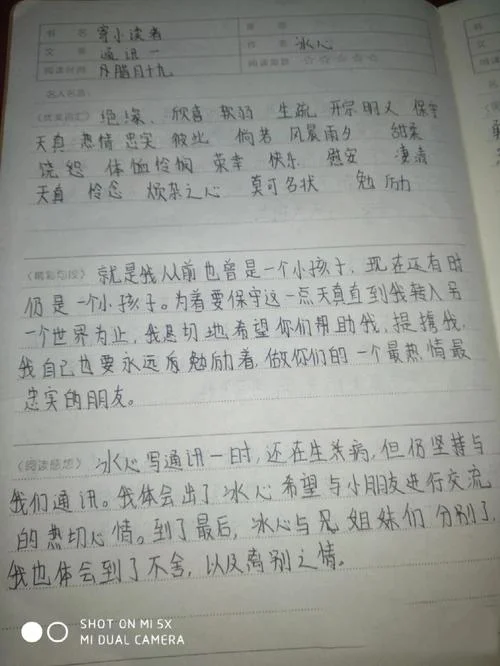 书 名 寄小读者
文 章 通讯一 作 者 冰心
阅读时间 腊月十九 阅读星级 ☆☆☆☆☆
名人名言:
绝缘、欣喜 软弱 生疏 开宗明义 保守
天真 热情 忠实 彼此 倘若 风晨雨夕 甜柔
饶恕 体恤怜悯 荣幸 快乐 慰安 凄清
天真 怜念 烦杂之心 莫可名状 勉励
(精彩句段) 就是我从前也曾是一个小孩子,现在还有时
仍是一个小孩子。为着要保守这一点天真直到我转入另
一个世界为止,我恳切地希望你们帮助我,提携我,
我自己也要永远 勉励着,做你们的一个最热情最
忠实的朋友。
(阅读感想) 冰心写通讯一时,还在生病,但仍坚持与
我们通讯。我体会出了冰心希望与小朋友进行交流
的热切心情。到了最后,冰心与兄姐妹们分别了,
我也体会到了不舍,以及离别之情。
SHOT ON MI 5X
MI DUAL CAMERA